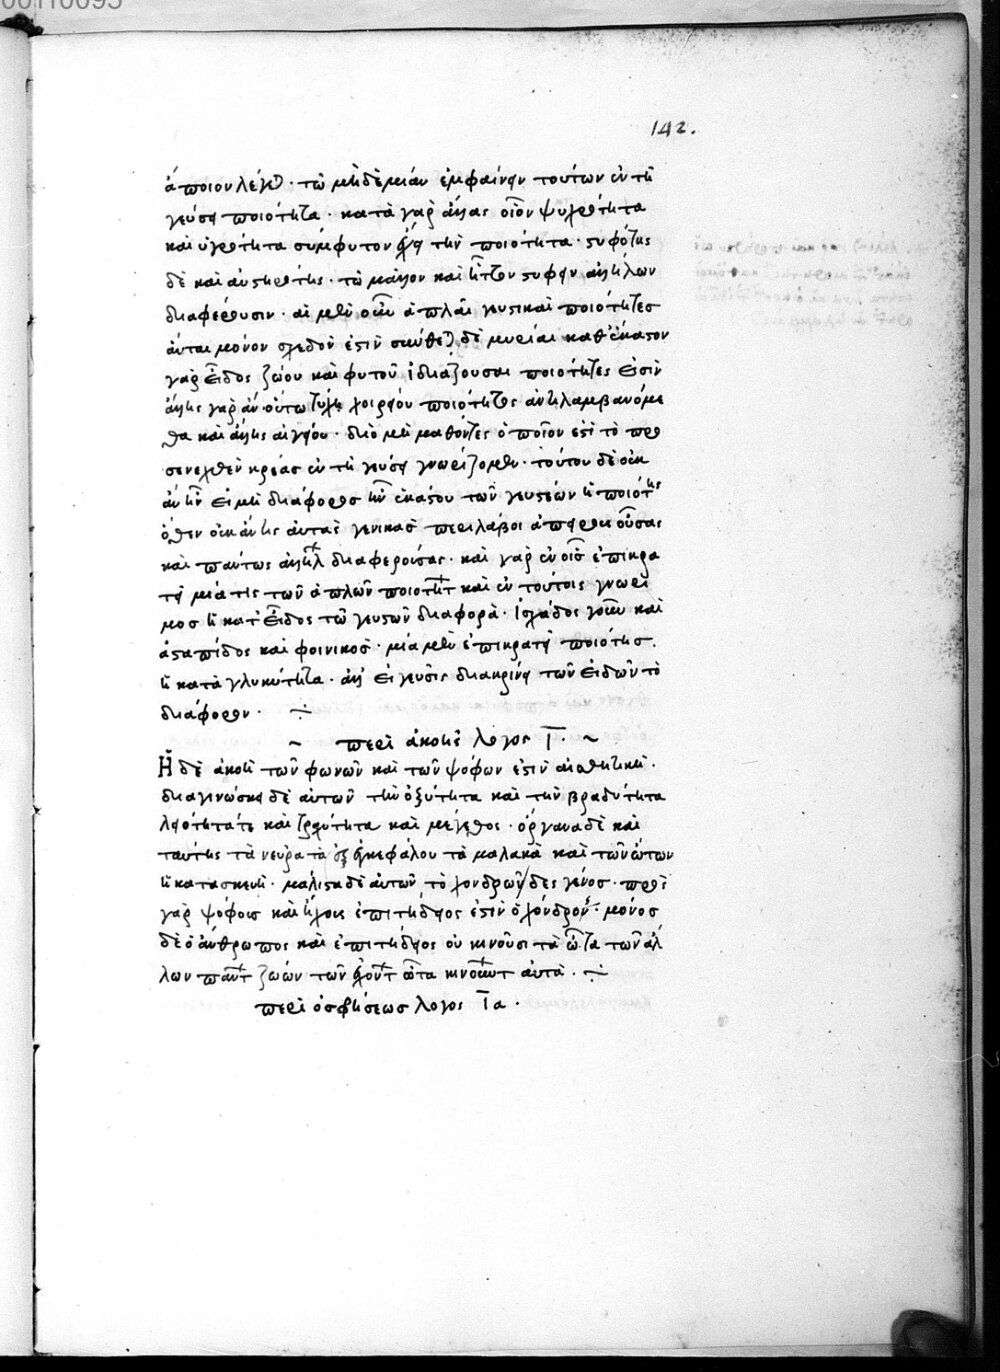 142.
ἄποιον λέγεται· τῶ μηδεμίαν ἐμφαίνειν τούτων ἐν τῆ
γεύσει ποιότητα· κατὰ γὰρ ἄλλας οἷον ψυχρότητα
καὶ ὑγρότητα σύμφυτον ἔχει τὴν ποιότητα· στυφότης
δὲ καὶ αὐστηρότης· τῶ μᾶλλον καὶ ἧττον στύφειν ἀλλήλων
διαφέρουσιν· αἱ μὲν οὖν ἁπλαῖ γευστικαὶ ποιότητες
αὗται μόνον σχεδόν εἰσιν σύνθετοι δὲ μυρίαι καθ' ἕκαστον
γὰρ εἶδος ζώου καὶ φυτοῦ ἰδιάζουσαι ποιότητες εἰσὶν
ἄλλης γὰρ ἂν οὕτω τύχη χοιρείου ποιότητος ἀντιλαμβανόμε
θα καὶ ἄλλης αἰγείου· διὸ μὴ μαθόντες ὁποῖον ἐστὶ τὸ προ
σενεχθὲν κρέας ἐν τῆ γεύσει γνωρίζομεν· τούτου δὲ οὐκ
ἂν ἦν εἰ μὴ διάφορος ἦν ἑκάστου τῶν γευστῶν ἡ ποιότης
ὅθεν οὐκ ἄν τις αὐτὰς γενικῶς περιλάβοι ἀπείρους οὔσας
καὶ πάντως ἀλλήλ διαφερούσας· καὶ γὰρ ἐν οἷς ἐπικρα
τεῖ μία τις τῶν ἁπλῶν ποιοτήτ καὶ ἐν τούτοις γνώρι
μος ἡ κατ' εἶδος τῶν γευστῶν διαφορὰ· ἰσχάδος γοῦν καὶ
ἀσταπίδος καὶ φοίνικος· μία μὲν ἐπικρατεῖ ποιότης.
ἡ κατὰ γλυκύτητα· ἀλλ' ἡ γεῦσις διακρίνει τῶν εἰδῶν τὸ
διάφορον·
~ περὶ ἀκοῆς λόγος Γ· ~
Ἡ δὲ ἀκοὴ τῶν φωνῶν καὶ τῶν ψόφων ἐστὶν αἰσθητική·
διαγινώσκει δὲ αὐτῶν τὴν ὀξύτητα καὶ τὴν βραδύτητα
λειότητά τε καὶ τραχύτητα καὶ μέγεθος· ὄργανα δὲ καὶ
ταύτης τὰ νεῦρα τὰ ἐξ ἐγκεφάλου τὰ μαλακὰ καὶ τῶν ὤτων
ἡ κατασκευή· μάλιστα δὲ αὐτῶν τὸ χονδρῶδες γένος· πρὸς
γὰρ ψόφους καὶ ἤχους ἐπιτήδειος ἐστὶν ὁ χόνδρος· μόνος
δὲ ὁ ἄνθρωπος καὶ ἐπιτήδειος οὐ κινοῦσι τὰ ὦτα τῶν ἄλ
λων πάντ ζώων τῶν ἐχόντ ὦτα κινούντ αὐτά·
περὶ ὀσφρήσεως λόγος Ια·